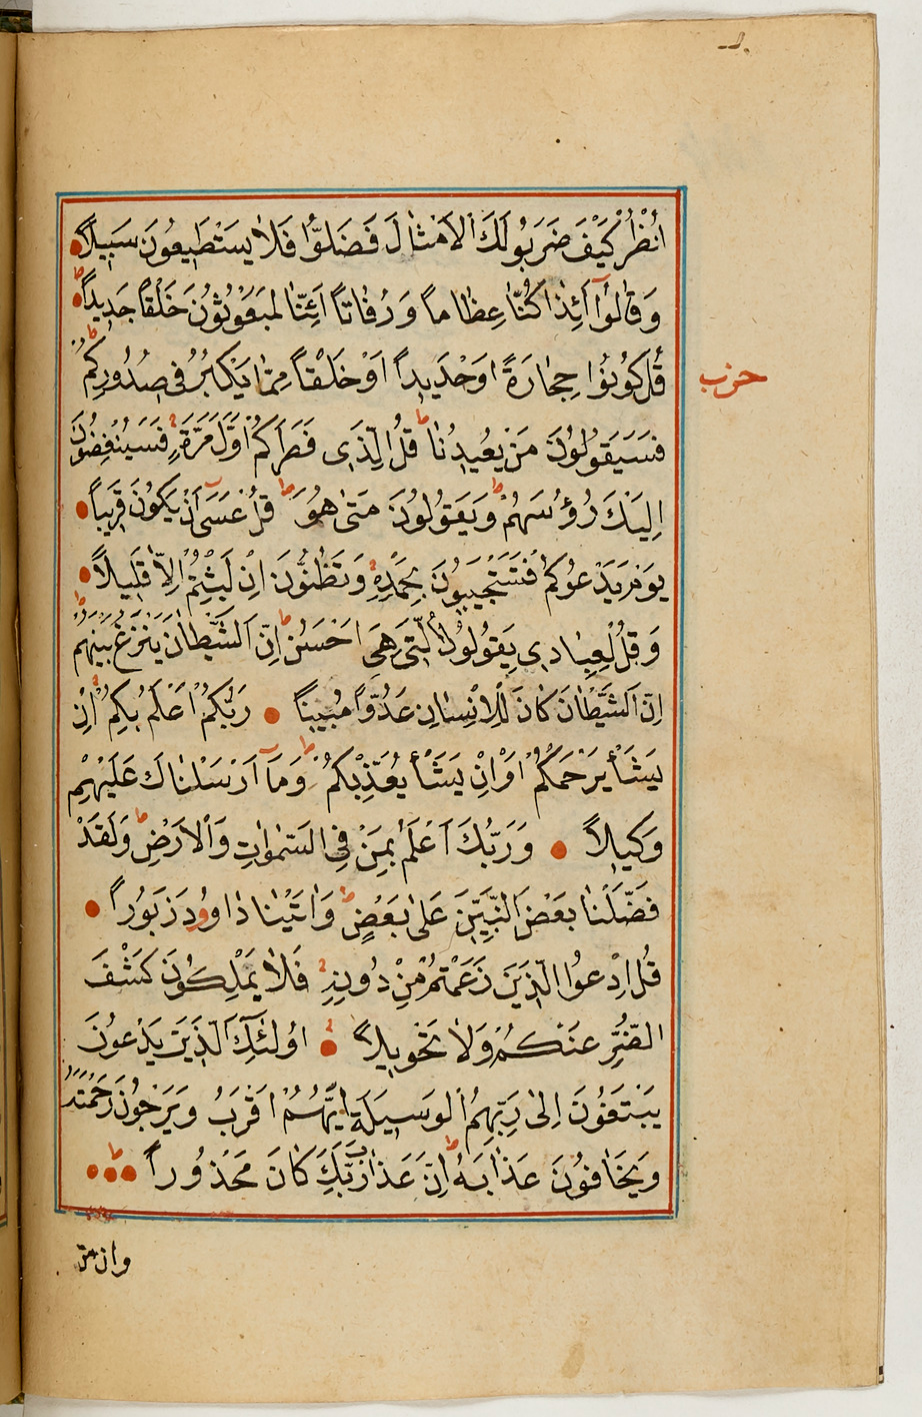 اُنْظُرْ كَيْفَ ضَرَبُوا لَكَ الْاَمْثَالَ فَضَلُّوا فَلَا يَسْتَطِيعُونَ سَبِيلًا
وَقَالُوا ءَاِذَا كُنَّا عِظَامًا وَرُفَاتًا ءَاِنَّا لَمَبْعُوثُونَ خَلْقًا جَدِيدًا
قُلْ كُونُوا حِجَارَةً اَوْ حَدِيدًا اَوْ خَلْقًا مِمَّا يَكْبُرُ فِى صُدُورِكُمْ
حزب
فَسَيَقُولُونَ مَنْ يُعِيدُنَا ط قُلِ الَّذِى فَطَرَكُمْ اَوَّلَ مَرَّةٍ فَسَيُنْغِضُونَ
اِلَيْكَ رُؤُسَهُمْ وَيَقُولُونَ مَتٰى هُوَ ط قُلْ عَسٰٓى اَنْ يَكُونَ قَرِيبًا
يَوْمَ يَدْعُوكُمْ فَتَسْتَجِيبُونَ بِحَمْدِهِ وَتَظُنُّونَ اِنْ لَبِثْتُمْ اِلَّا قَلِيلًا
وَقُلْ لِعِبَادِى يَقُولُوا الَّتِى هِىَ اَحْسَنُ ط اِنَّ الشَّيْطَانَ يَنْزَغُ بَيْنَهُمْ
اِنَّ الشَّيْطَانَ كَانَ لِلْاِنْسَانِ عَدُوًّا مُبِينًا رَبُّكُمْ اَعْلَمُ بِكُمْ اِنْ
يَشَأْ يَرْحَمْكُمْ اَوْ اِنْ يَشَأْ يُعَذِّبْكُمْ ط وَمَٓا اَرْسَلْنَاكَ عَلَيْهِمْ
وَكِيلًا وَرَبُّكَ اَعْلَمُ بِمَنْ فِى السَّمٰوَاتِ وَالْاَرْضِ ط وَلَقَدْ
فَضَّلْنَا بَعْضَ النَّبِيِّنَ عَلٰى بَعْضٍ ط وَاٰتَيْنَا دَاوُودَ زَبُورًا
قُلِ ادْعُوا الَّذِينَ زَعَمْتُمْ مِنْ دُونِهِ فَلَا يَمْلِكُونَ كَشْفَ
الضُّرِّ عَنْكُمْ وَلَا تَحْوِيلًا اُولٰٓئِكَ الَّذِينَ يَدْعُونَ
يَبْتَغُونَ اِلٰى رَبِّهِمُ الْوَسِيلَةَ اَيُّهُمْ اَقْرَبُ وَيَرْجُونَ رَحْمَتَهُ
وَيَخَافُونَ عَذَابَهُ ط اِنَّ عَذَابَ رَبِّكَ كَانَ مَحْذُورًا
وان من